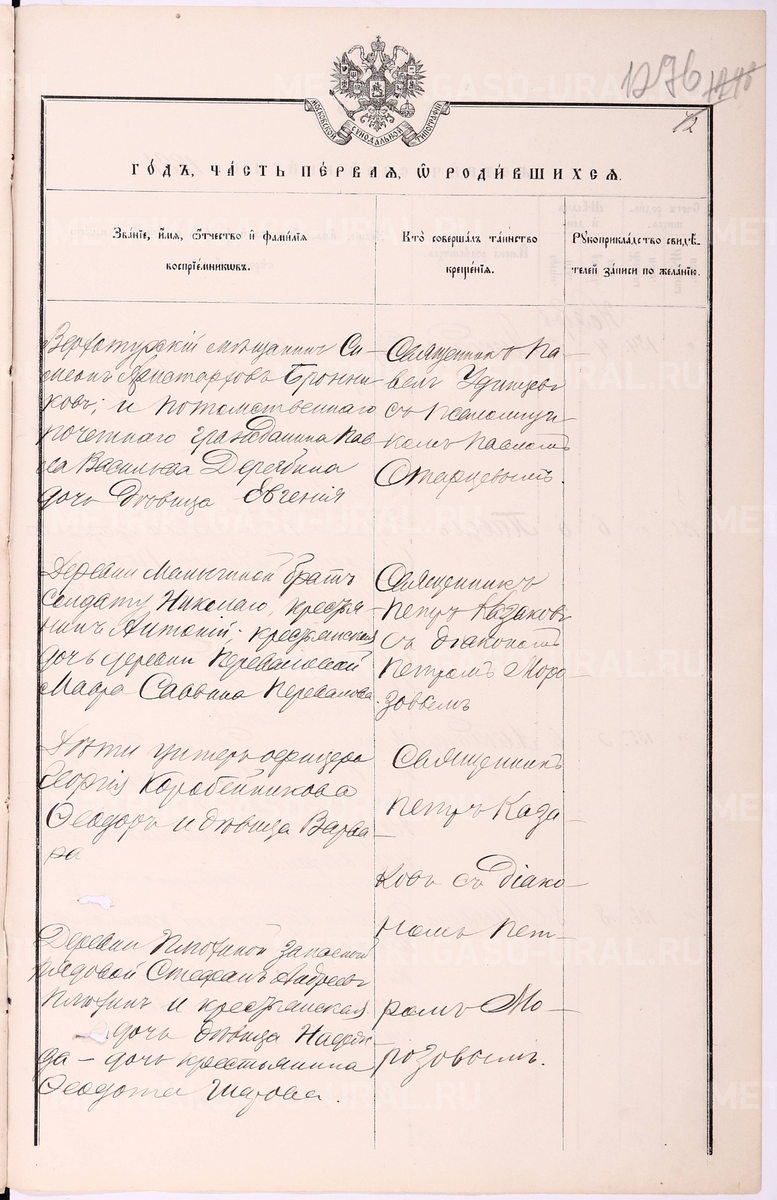 1276
12
МОСКОВСКОЙ СѴНОДАЛЬНОЙ ТИПОГРАФІИ
ГО́ДЪ, ЧА́СТЬ ПЕ́РВАЯ, Ѡ҆ РОДИ́ВШИХСЯ.
Зва́нїе, и҆́мя, ѻ҆́тчество и҆ фами́лїя
воспрїе́мникѡвъ.
Кто̀ соверша́лъ та́инство
креще́нїя.
Рꙋкоприкла́дство свидѣ́-
телей за́писи по жела́нїю.
Верхотурскій мѣщанинъ Си-
меонъ Бронни-
ковъ; и потомственнаго
почетнаго гражданина Пав-
ла Васильева Дерябина
дочь дѣвица Евгенія
Священникъ Па-
велъ Удинцевъ
съ псаломщи-
комъ Павломъ
Старцевымъ.
Деревни Манычиной братъ
солдату Николаю, крестья-
нинъ Антоній; крестьянская
дочь деревни Переваловой
Мавра Саввина Перевалова.
Священникъ
Петръ Казаковъ
съ діакономъ
Петромъ Моро-
зовымъ
Дѣти унтеръ офицера
Георгія Коробейникова
Ѳеодоръ и дѣвица Варва-
ра
Священникъ
Петръ Каза-
ковъ съ діако-
номъ Пет-
ромъ Мо-
розовымъ.
Деревни запасной
рядовой Стефанъ Андреевъ
и крестьянская
дочь дѣвица Надеж-
да – дочь крестьянина
Ѳеодота Шахова.